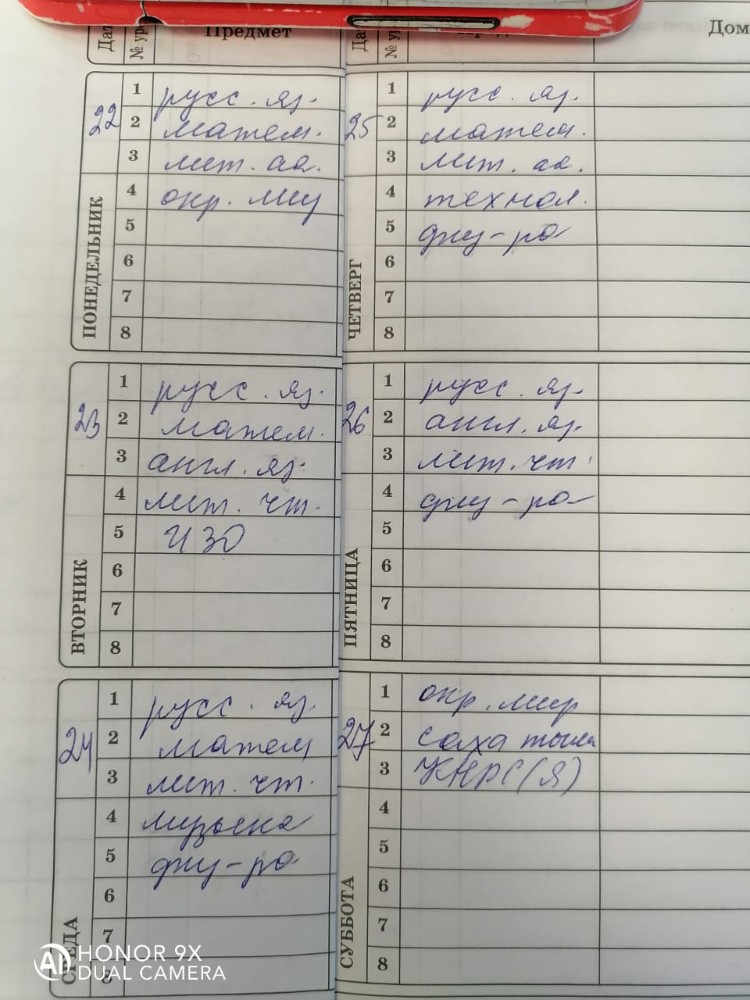 Дат
№ ур
Предмет
22
ПОНЕДЕЛЬНИК
1 русс. яз.
2 матем.
3 лит. аа.
4 окр. миу
5
6
7
8
23
ВТОРНИК
1 русс. яз.
2 матем.
3 англ. яз.
4 лит. чт.
5 ИЗО
6
7
8
24
СРЕДА
1 русс. яз.
2 матем
3 лит. чт.
4 музыка
5 физ-ра
6
7
8
Да
№ ур
Дом
25
ЧЕТВЕРГ
1 русс. яз.
2 матем.
3 лит. аа.
4 технол.
5 физ-ра
6
7
8
26
ПЯТНИЦА
1 русс. яз.
2 англ. яз.
3 лит. чт.
4 физ-ра
5
6
7
8
27
СУББОТА
1 окр. мир
2 саха тыла
3 КНРС(Я)
4
5
6
7
8
HONOR 9X
AI DUAL CAMERA